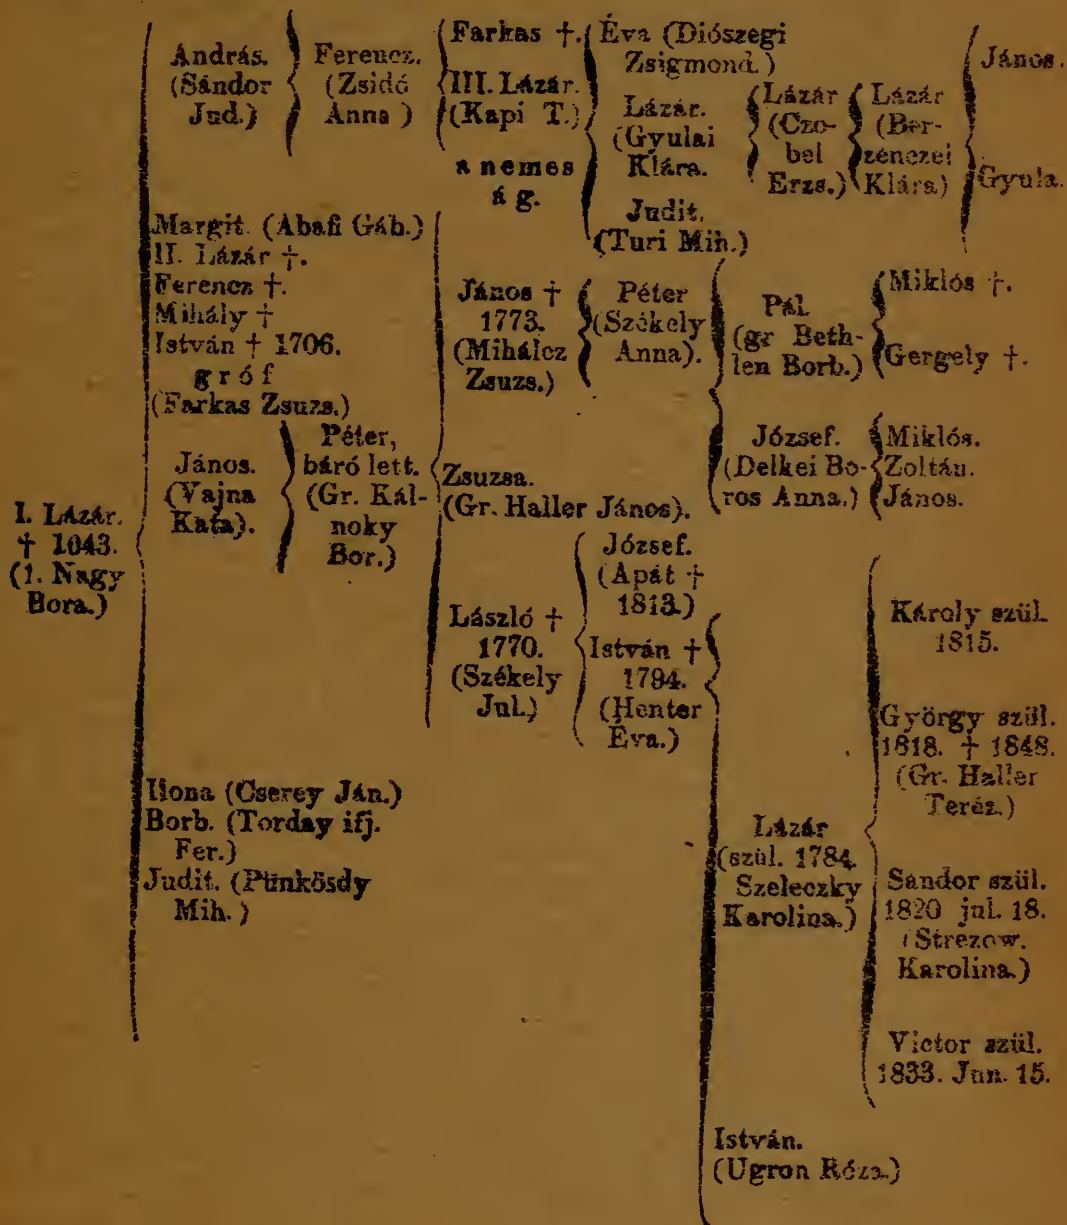 I. Lázár.
† 1643.
(1. Nagy
Bora.)
András.
(Sándor
Jud.)
Ferencz.
(Zsidó
Anna )
Farkas †.
III. Lázár.
(Kapi T.)
a nemes
á g.
Éva (Diószegi
Zsigmond.)
Lázár.
(Gyulai
Klára.
Judit.
(Turi Mih.)
Lázár
(Czo-
bel
Erzs.)
Lázár
(Ber-
zenczei
Klára)
János.
Gyula.
Margit. (Abafi Gáb.)
II. Lázár †.
Ferencz †.
Mihály †
István † 1706.
gróf
(Farkas Zsuzs.)
János.
(Vajna
Kata).
Péter,
báró lett.
(Gr. Kál-
noky
Bor.)
János †
1773.
(Mihálcz
Zsuzs.)
Péter
(Székely
Anna).
Pál.
(gr Beth-
len Borb.)
Miklós †.
Gergely †.
József.
(Delkei Bo-
ros Anna.)
Miklós.
Zoltán.
János.
Zsuzsa.
(Gr. Haller János).
László †
1770.
(Székely
Jul.)
József.
(Apát †
1813.)
István †
1794.
(Henter
Éva.)
Lázár
(szül. 1784.
Szeleczky
Karolina.)
Károly szül.
1815.
György szül.
1818. † 1848.
(Gr. Haller
Teréz.)
Sándor szül.
1820 jul. 18.
(Strezow.
Karolina.)
Victor szül.
1833. Jun. 15.
István.
(Ugron Róza.)
Ilona (Cserey Ján.)
Borb. (Torday ifj.
Fer.)
Judit. (Pünkösdy
Mih.)